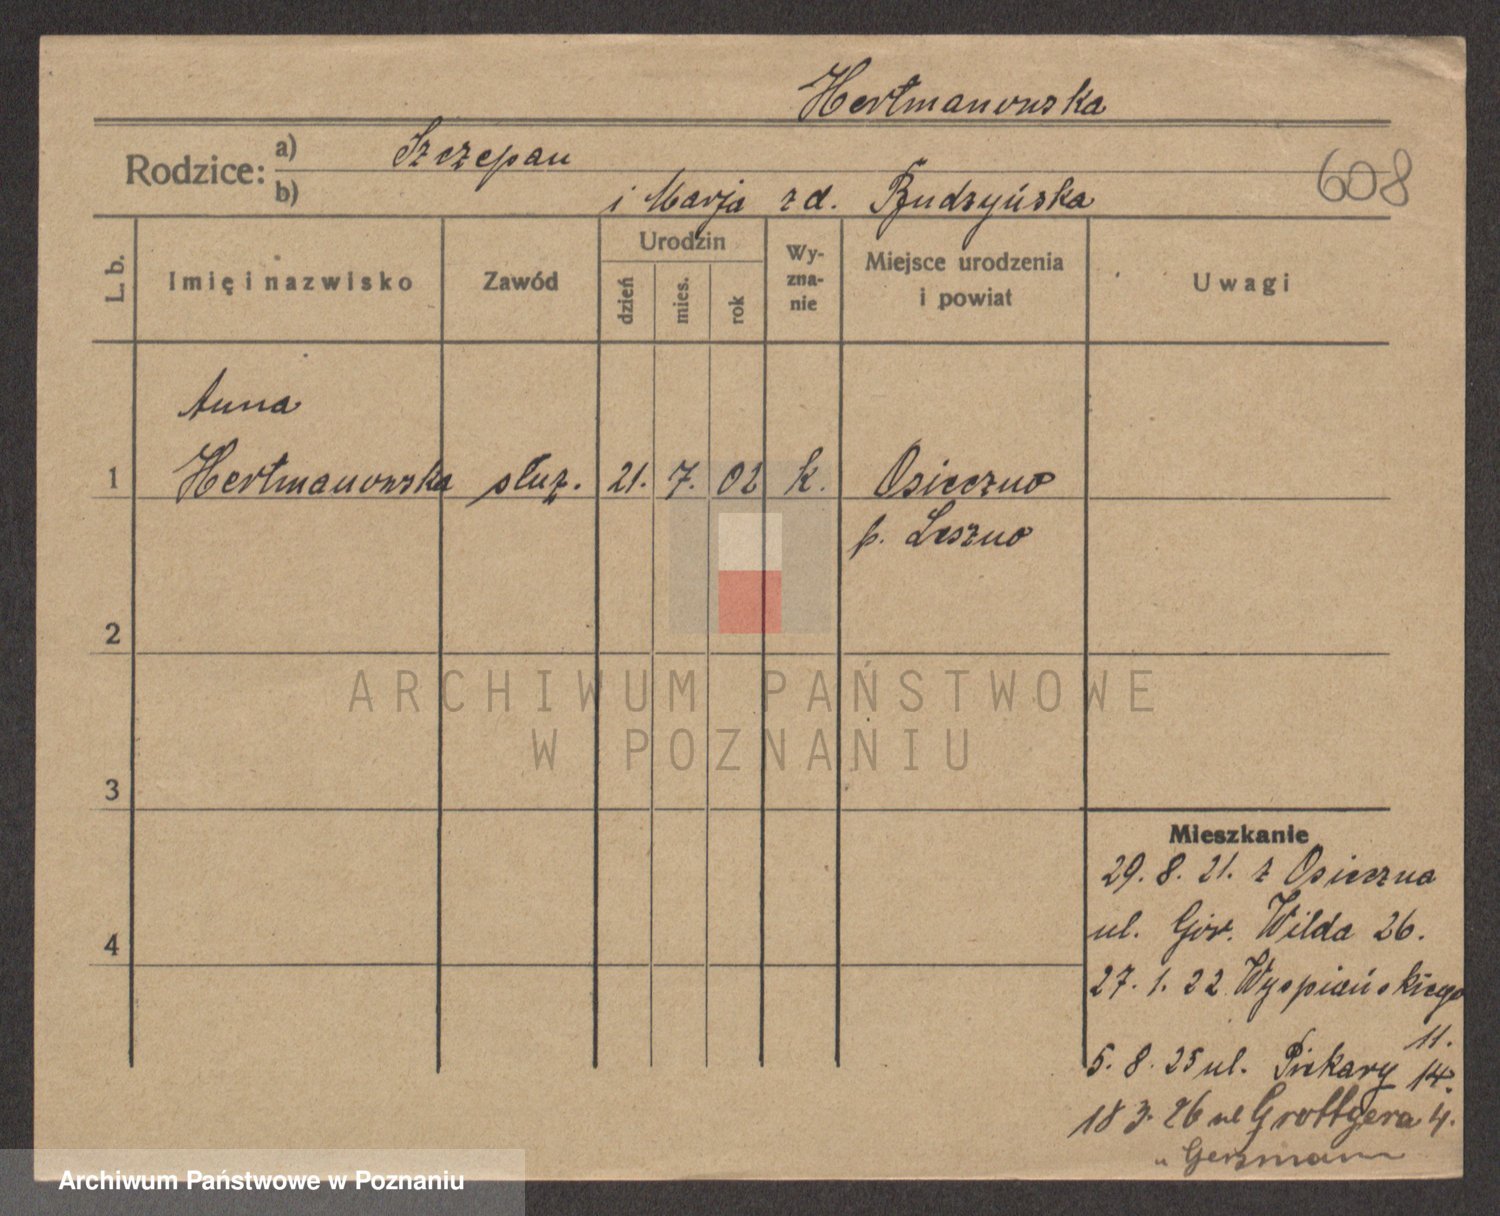 Hertmanowska
Rodzice: a) Szczepan
b) i Marja z d. Budzyńska
608
L. b.
Imię i nazwisko
Zawód
Urodzin
dzień
mies.
rok
Wy-
zna-
nie
Miejsce urodzenia
i powiat
Uwagi
Anna
1 Hertmanowska służ. 21. 7. 02 k. Osieczno
p. Leszno
2
3
4
ARCHIWUM PAŃSTWOWE
W POZNANIU
Mieszkanie
29. 8. 21. z Osieczna
ul. Gór. Wilda 26.
27. 1. 22 Wyspiańskiego
11.
5. 8. 25 ul. Piekary 14.
18 3. 26 ul Grottgera 4.
Archiwum Państwowe w Poznaniu